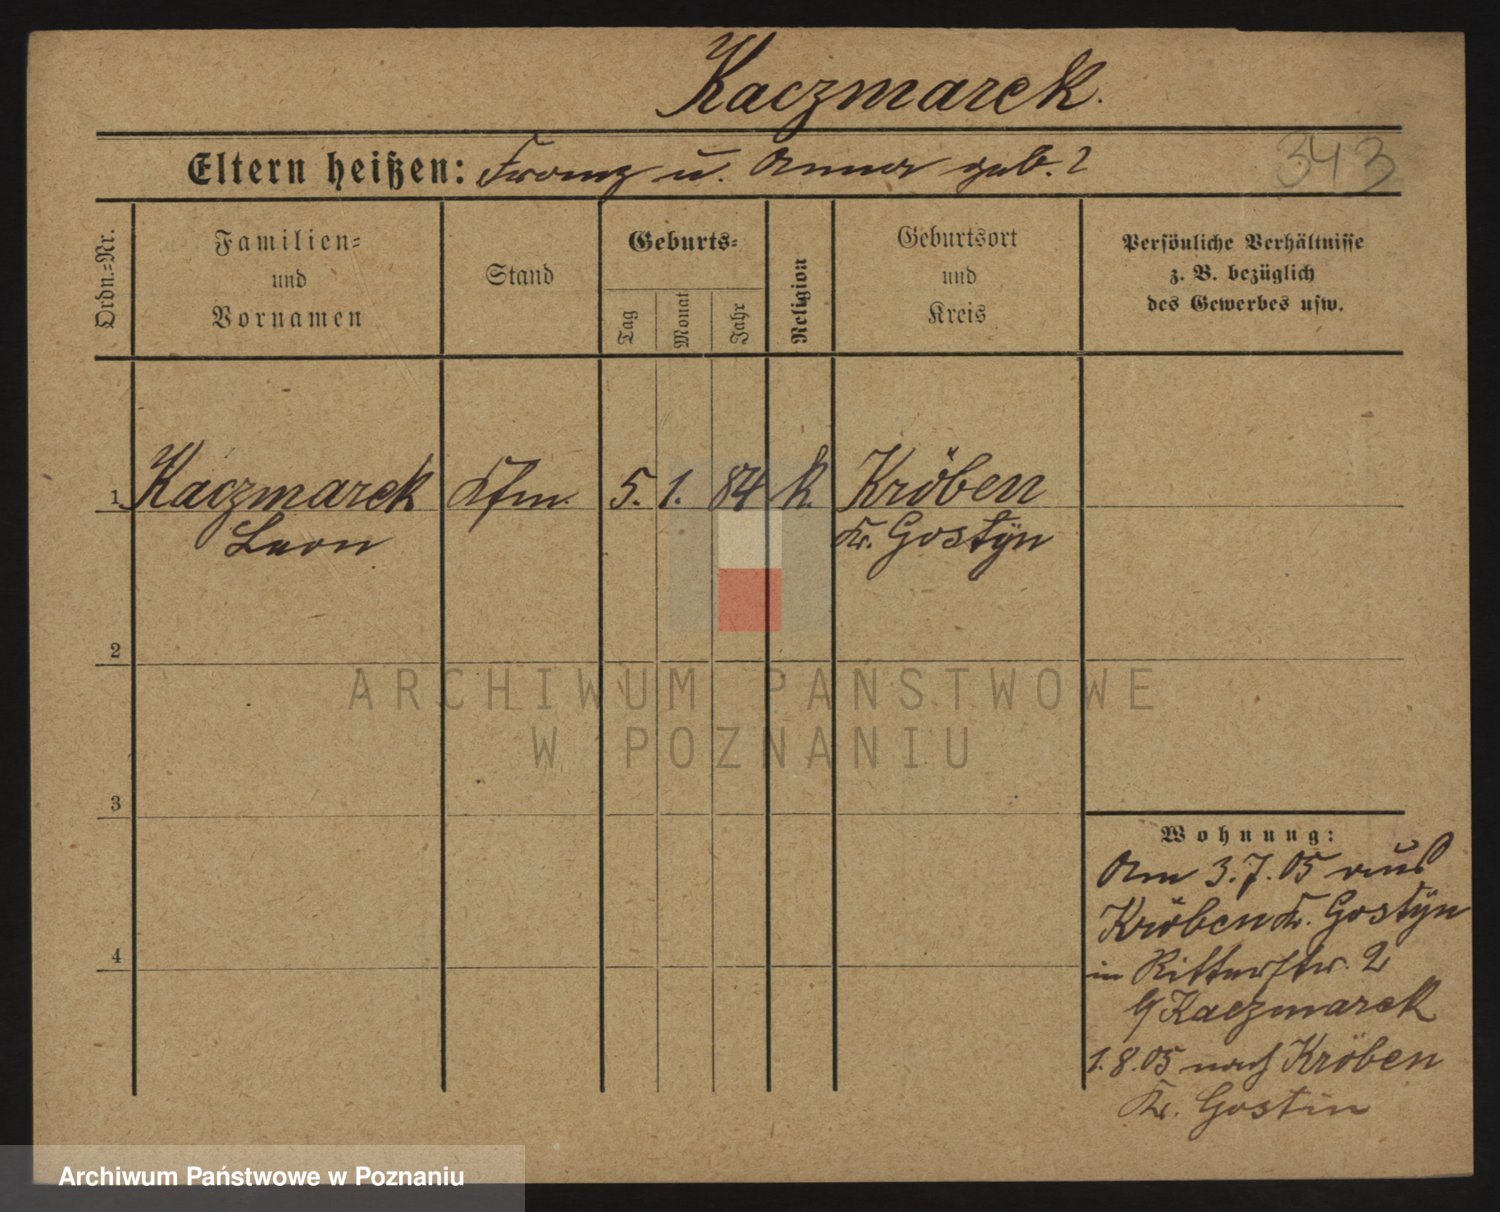 Kaczmarek.
Eltern heißen: Franz u. Anna geb. ?
343
Ordn.=Nr.
Familien=
und
Vornamen
Stand
Geburts=
Tag
Monat
Jahr
Religion
Geburtsort
und
Kreis
Persönliche Verhältnisse
z. B. bezüglich
des Gewerbes usw.
1 Kaczmarek Kfm. 5. 1. 84 k. Kröben
Leon Kr. Gostÿn
2
ARCHIWUM PAŃSTWOWE
W POZNANIU
3
Wohnung:
Am 3.7.05 aus
Kröben Kr. Gostÿn
4
in Ritterstr. 2
b/Kaczmarek
1.8.05 nach Kröben
Kr. Gostin
Archiwum Państwowe w Poznaniu